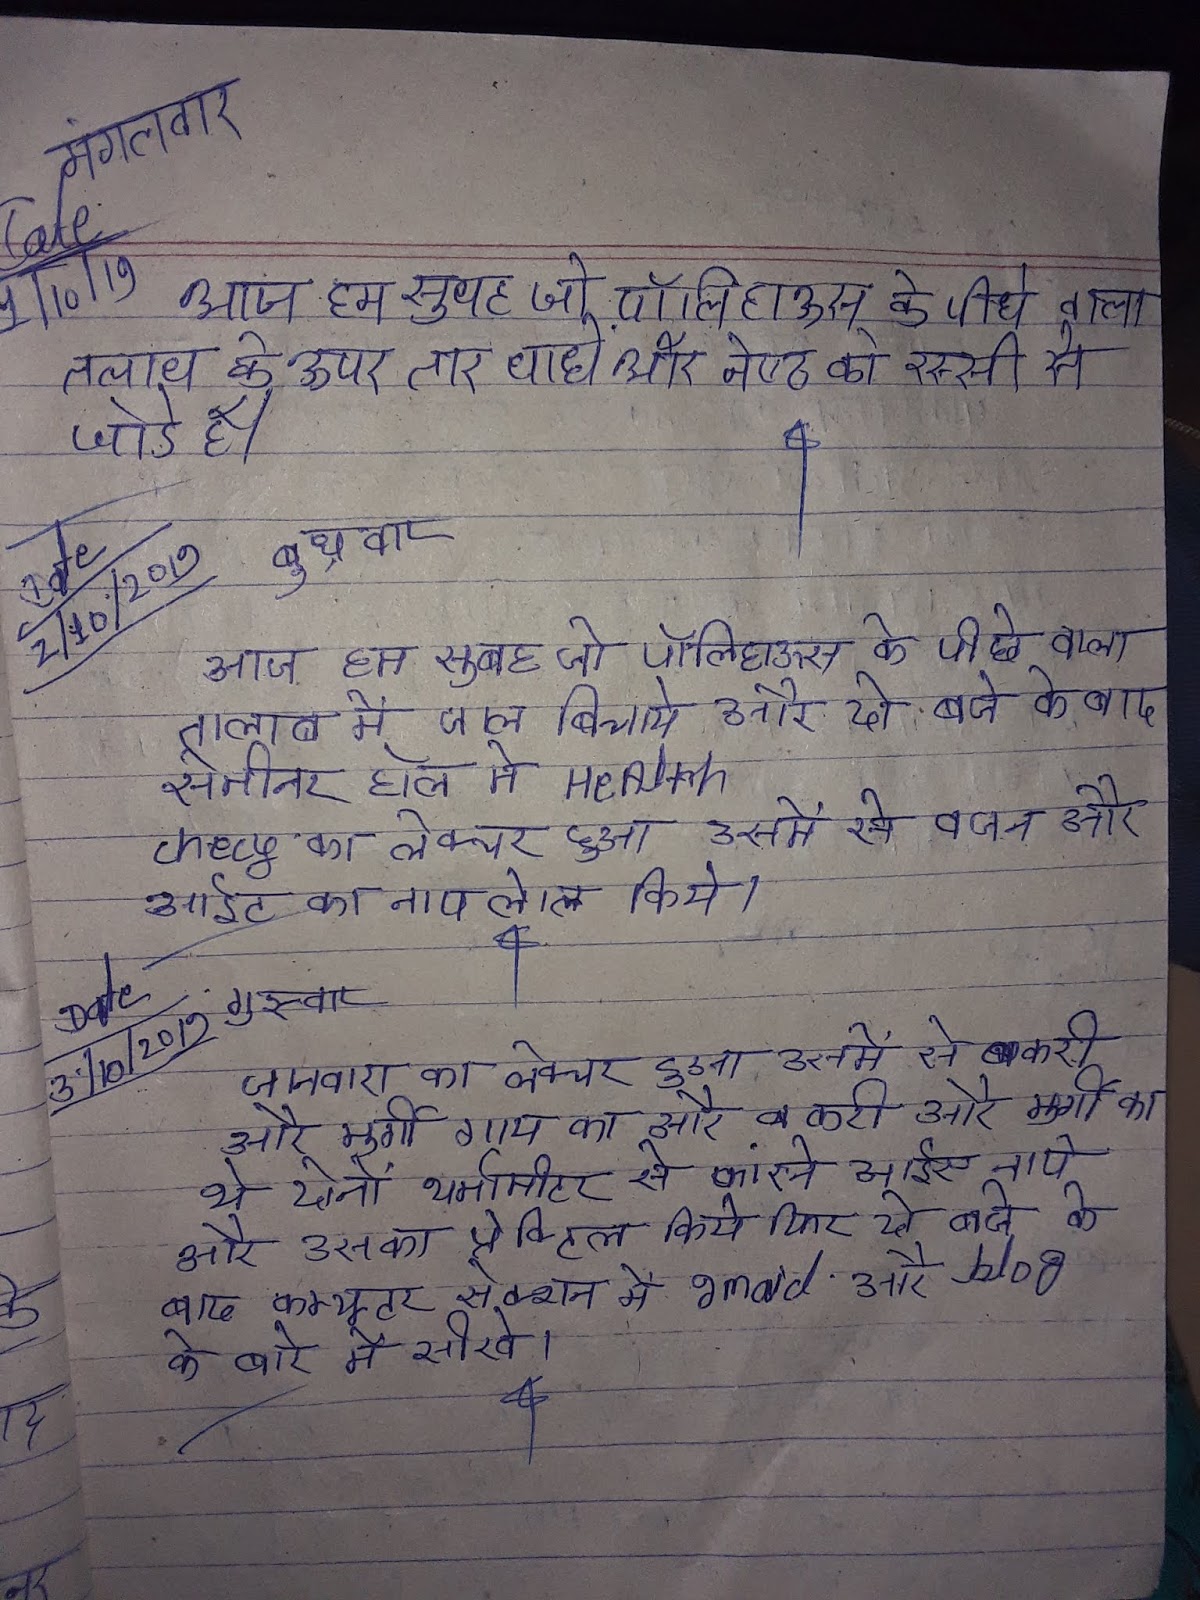 मंगलवार
Date
1/10/19 आज हम सुवह जो पॉलिहाऊस के पीधे वाला
तलाव के ऊपर तार वाधे और नेण्ट को रस्सी से
जोडे है।
Date
2/10/2019 बुध्रवार
आज हम सुबह जो पॉलिहाऊस के पीछे वाला
तालाब में जाल बिचाये और दो बजे के बाद
सेमीनर हॉल मे Health
check का लेक्चर हुआ उसमें से वजन और
आईट का नाप किये।
Date
3/10/2019 गुरुवार
जानवारा का लेक्चर हुआ उसमें से बकरी
और मुर्गी गाय का और बकरी और मुर्गी का
ये दोनों थर्मामीटर से आईस नापे
और उसका किये फिर दो बजे के
बाद कम्प्यूटर सेक्शन में gmail और blog
के बारे में सीखे।